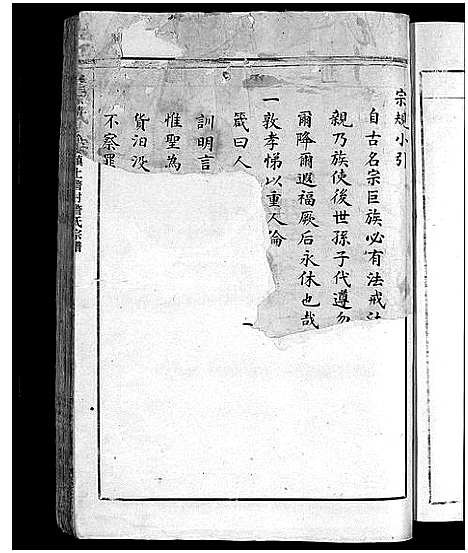 宗規小引
自古名宗巨族必有法戒法
親乃族使後世孫子代遵勿
爾降爾遐福厥后永休也哉
一敦孝悌以重人倫
箴曰人
訓明言
惟聖為
貨泊沒
不察罪
上曹村曹氏宗譜